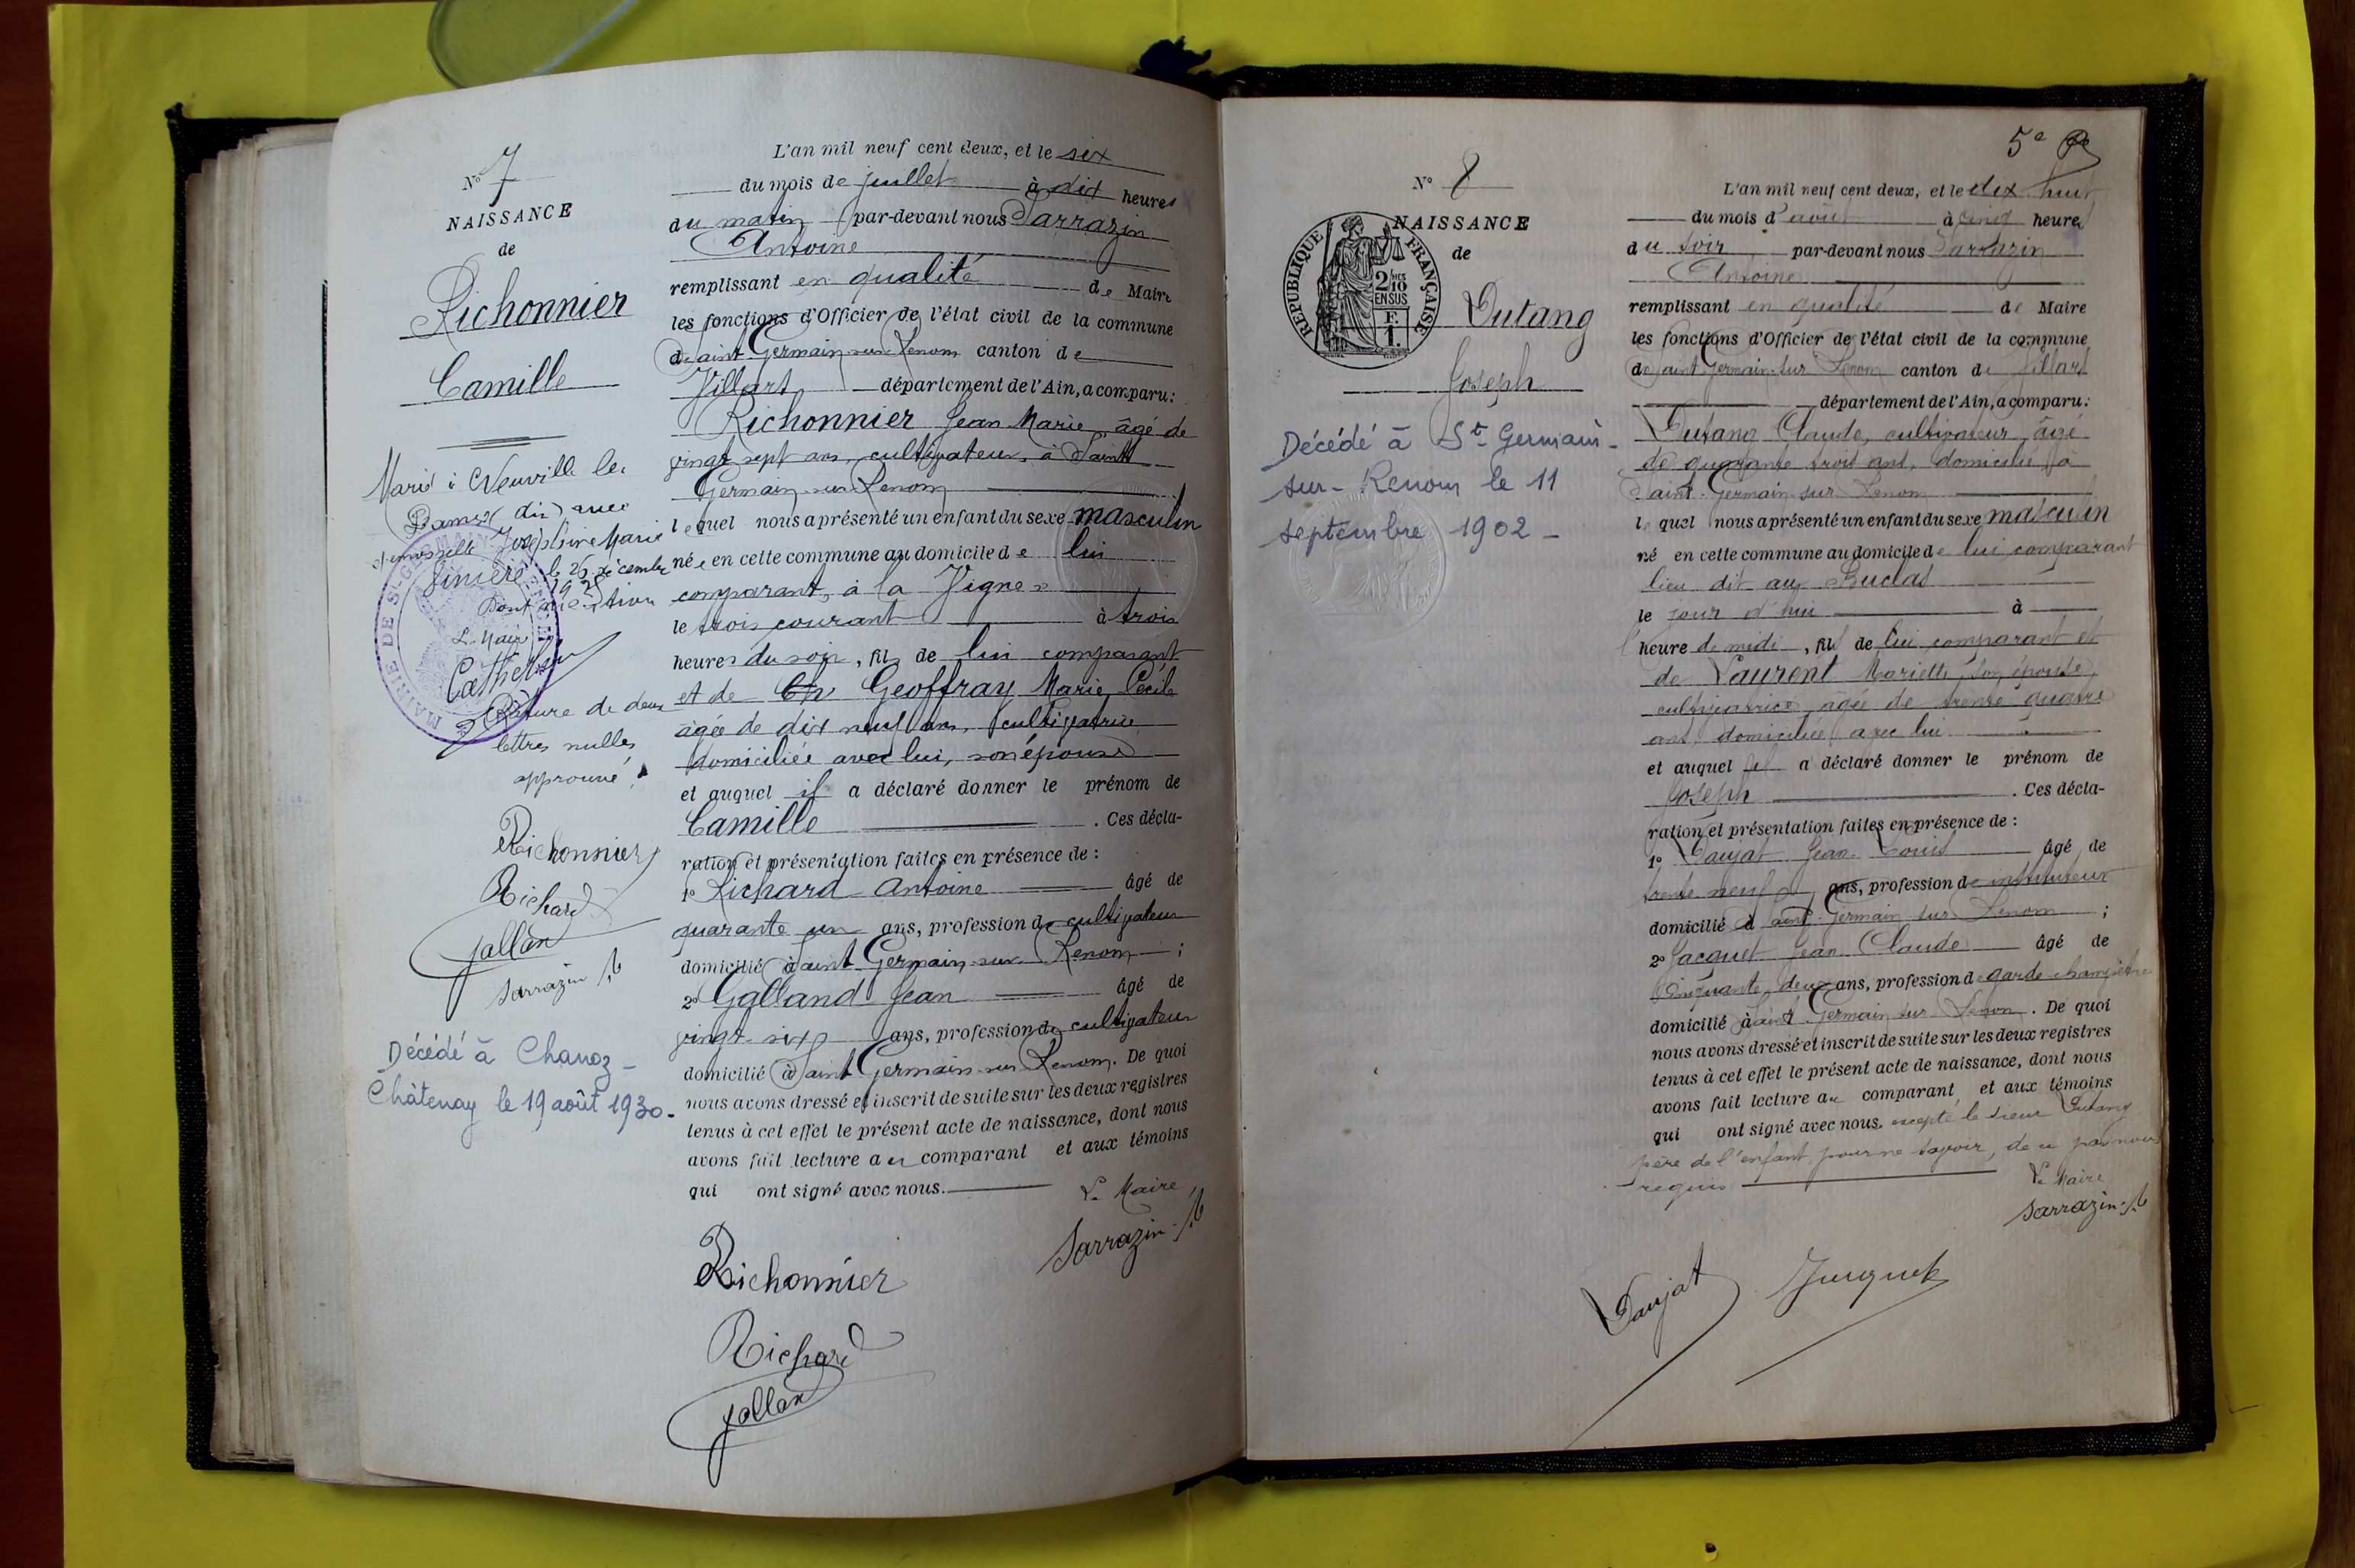 N° 7
NAISSANCE
de
Richonnier
Camille
Marié à Neuville les
Dames (Ain) avec
demoiselle Joséphine Marie
le 26 décembre
1925
Dont mention
Le Maire
MAIRIE DE ST-GERMAIN
Rature de deux
lettres nulles
approuvé.
Richonnier
Richard
Galland
Sarrazin A
Décédé à Chanoz-
Châtenay le 19 août 1930-
L'an mil neuf cent deux, et le six
du mois de juillet à dix heures
du matin par-devant nous Sarrazin
Antoine
remplissant en qualité de Maire
les fonctions d'Officier de l'état civil de la commune
de Saint Germain-sur-Renom canton de
Villars département de l'Ain, a comparu:
Richonnier Jean Marie, âgé de
vingt sept ans, cultivateur, à Saint
Germain-sur-Renom
lequel nous a présenté un enfant du sexe masculin
né en cette commune au domicile de lui
comparant, à la Vigne
le trois courant à trois
heures du soir, fils de lui comparant
et de Ch Geoffray Marie Cécile
âgée de dix neuf ans, cultivatrice
domiciliée avec lui, son épouse
et auquel il a déclaré donner le prénom de
Camille . Ces décla-
ration et présentation faites en présence de :
1° Richard Antoine âgé de
quarante un ans, profession de cultivateur
domicilié à Saint Germain-sur-Renom ;
2° Galland Jean âgé de
vingt-six ans, profession de cultivateur
domicilié à Saint Germain-sur-Renom. De quoi
nous avons dressé et inscrit de suite sur les deux registres
tenus à cet effet le présent acte de naissance, dont nous
avons fait lecture au comparant et aux témoins
qui ont signé avec nous.
Le Maire,
Sarrazin A
Richonnier
Richard
Galland
5e
N° 8
NAISSANCE
de
REPUBLIQUE FRANÇAISE
2/10
EN SUS
F.
1.
Dutang
Joseph
Décédé à St-Germain-
sur-Renom le 11
septembre 1902-
L'an mil neuf cent deux, et le dix huit
du mois d'août à cinq heures
du soir par-devant nous Sarrazin
Antoine
remplissant en qualité de Maire
les fonctions d'Officier de l'état civil de la commune
de Saint Germain-sur-Renom canton de Villars
département de l'Ain, a comparu:
Dutang Claude, cultivateur, âgé
de quarante trois ans, domicilié à
Saint-Germain-sur-Renom
lequel nous a présenté un enfant du sexe masculin
né en cette commune au domicile de lui comparant
lieu dit au Buclas
le jour d'hui à
heure de midi, fils de lui comparant et
de Laurent Mariette, son épouse,
cultivatrice, âgée de trente quatre
ans, domiciliée avec lui
et auquel il a déclaré donner le prénom de
Joseph . Ces décla-
ration et présentation faites en présence de :
1° Daujat Jean Louis âgé de
trente neuf ans, profession de instituteur
domicilié à Saint-Germain-sur-Renom ;
2° Jacquet Jean Claude âgé de
cinquante deux ans, profession de garde-champêtre
domicilié à Saint-Germain-sur-Renom. De quoi
nous avons dressé et inscrit de suite sur les deux registres
tenus à cet effet le présent acte de naissance, dont nous
avons fait lecture au comparant et aux témoins
qui ont signé avec nous, excepté le sieur Dutang
père de l'enfant pour ne savoir, de ce par nous
requis
Le Maire
Sarrazin A
Daujat
Jacquet